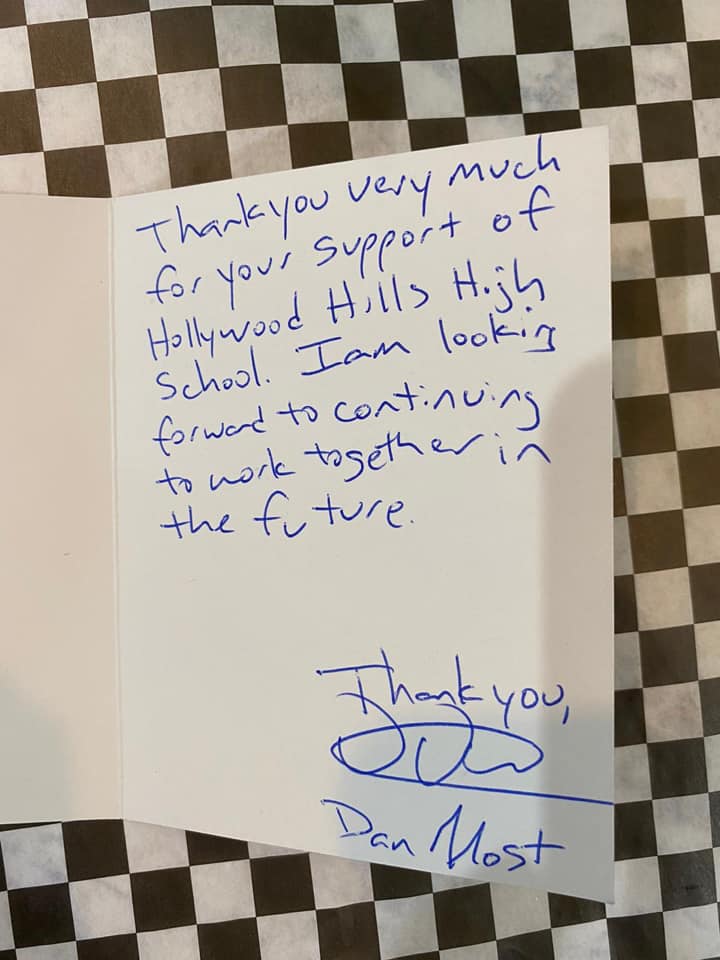 Thank you very much
for your support of
Hollywood Hills High
School. I am looking
forward to continuing
to work together in
the future.
Thank you,
Dan Most